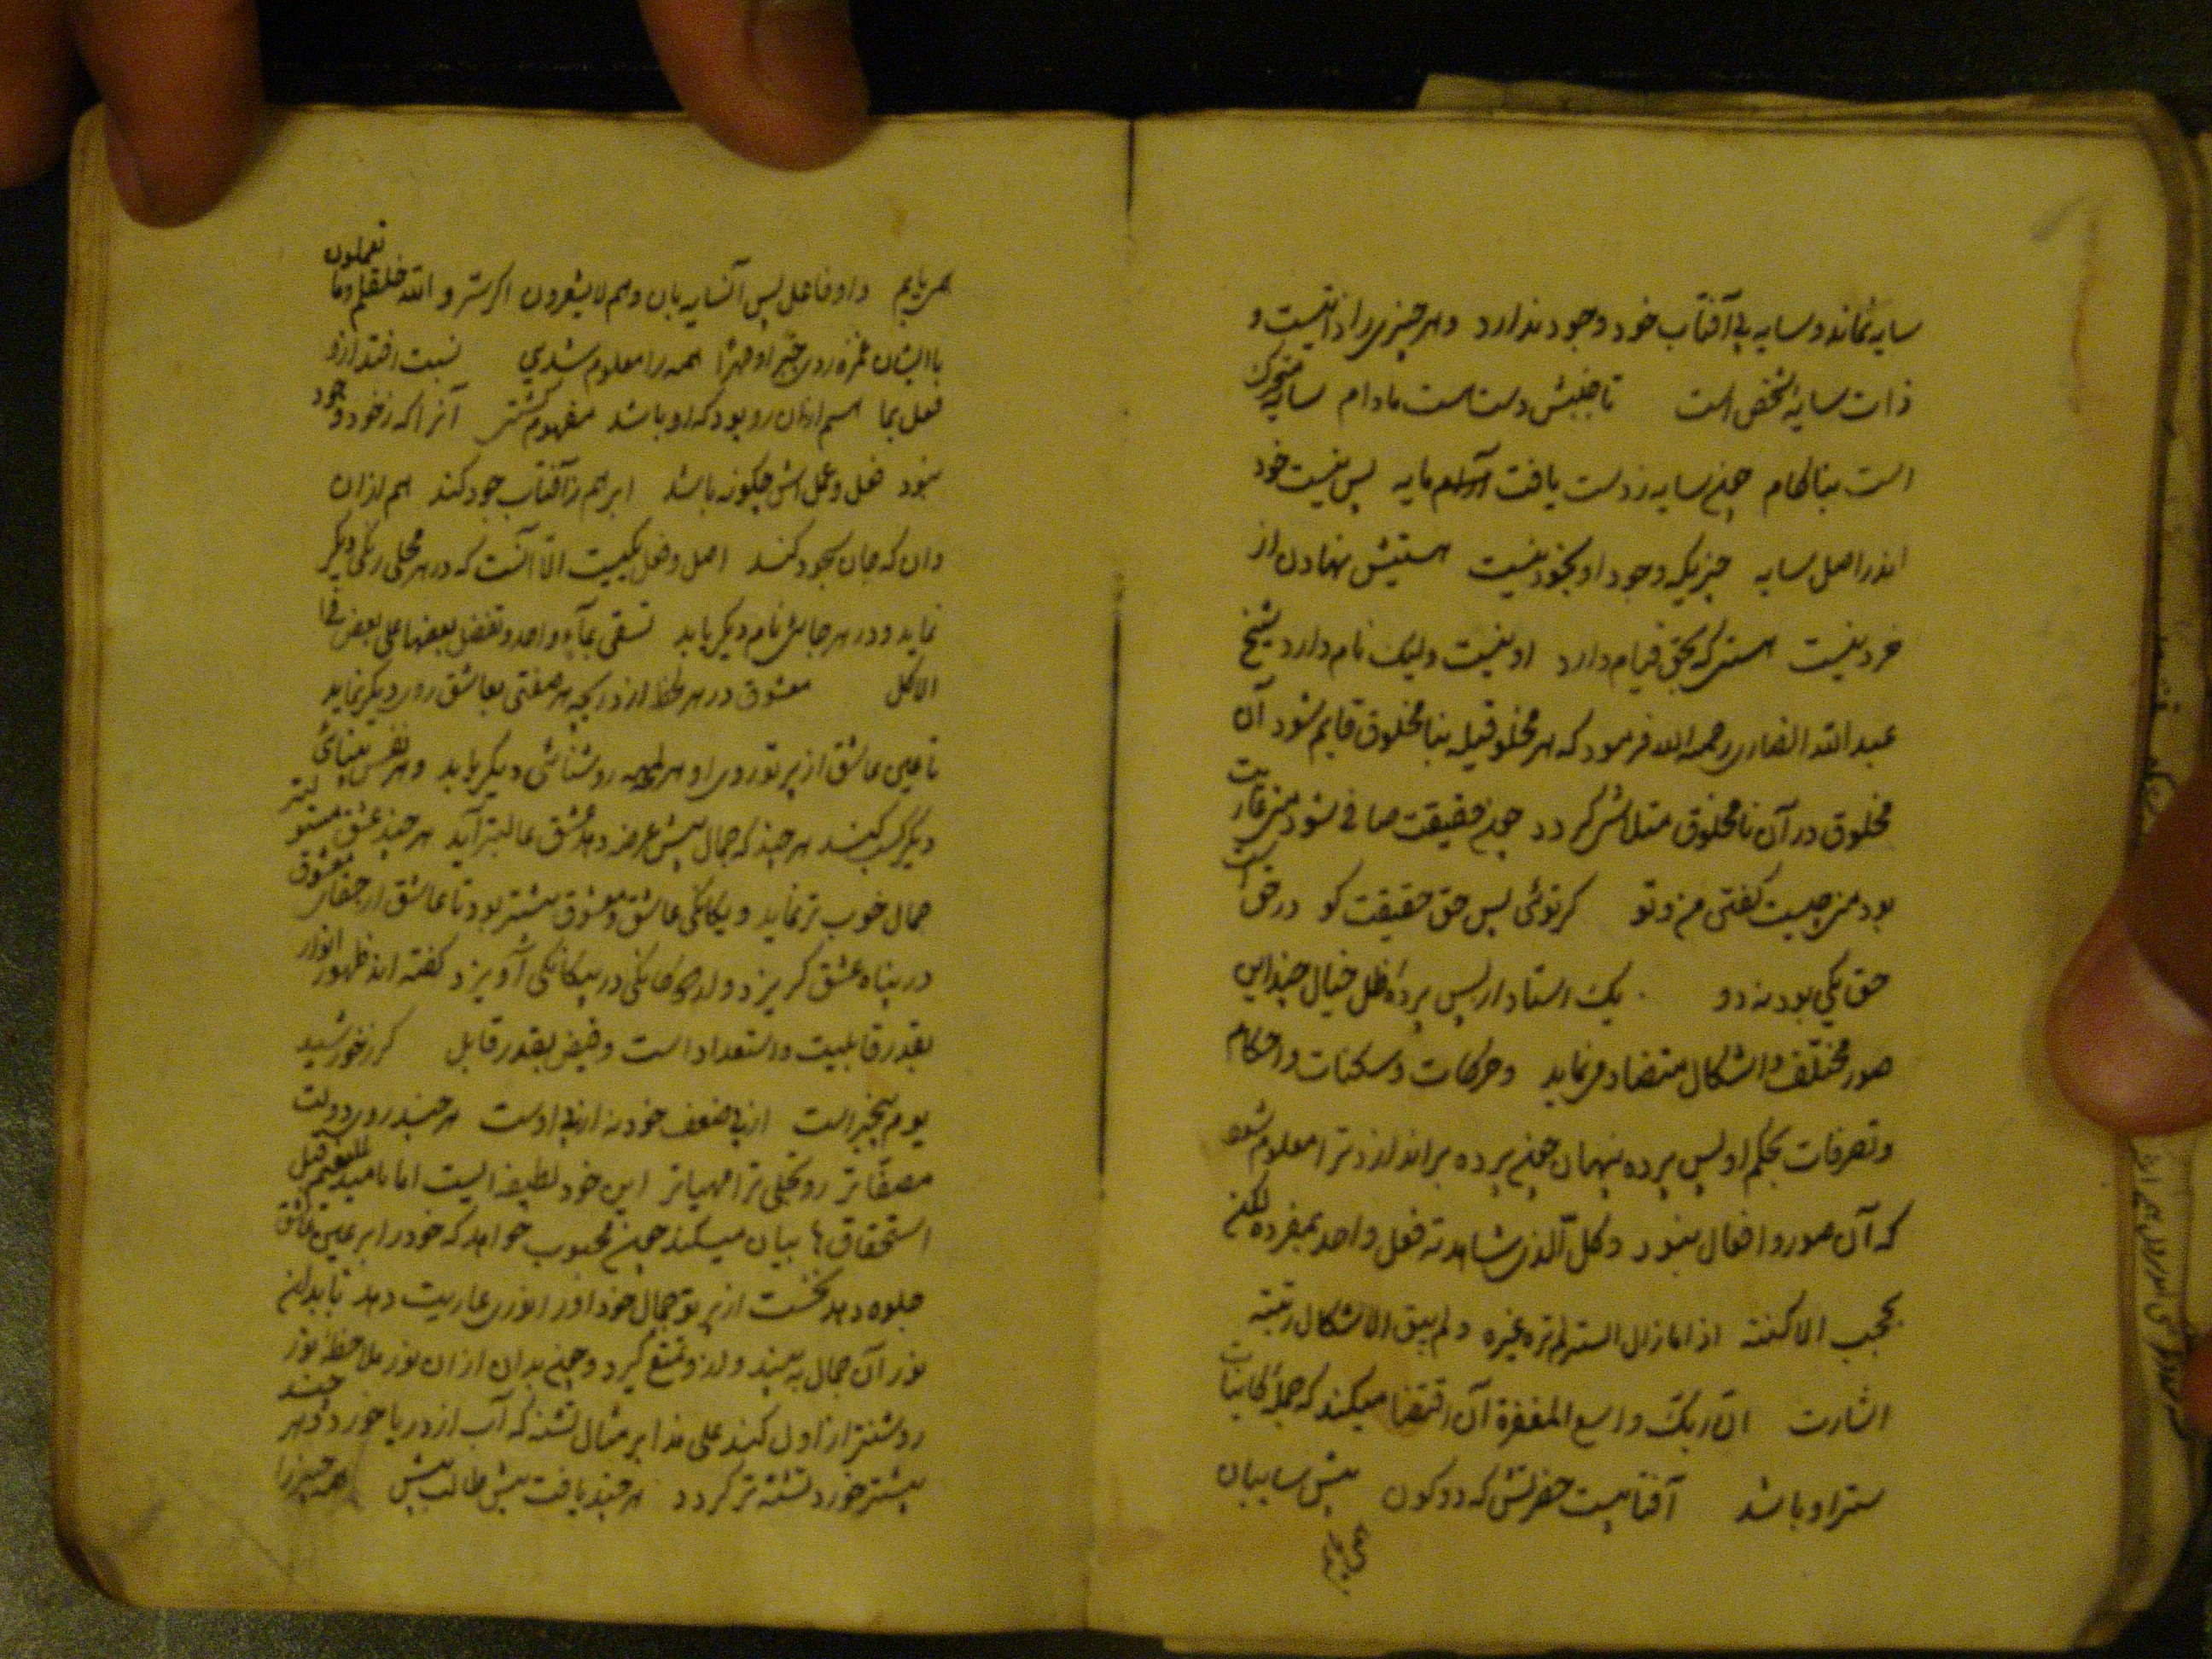 سایه نماند و سایه بی آفتاب خود وجود ندارد و هر چیزی را ذاتیست و
ذات سایه شخص است تا جنبش دست هست مادام سایه متحرک
است بناکام چون سایه ز دست یافت مایه پس نیست خود
اندر اصل سایه چیزیکه وجود او بخود نیست هستیش نهادن از
خرد نیست هستی که بحق قیام دارد او نیست ولیک نام دارد شیخ
عبد الله انصاری رحمه الله فرمود که هر مخلوقیکه بنا مخلوق قایم شود آن
مخلوق در آن نا مخلوق متلاشی گردد چون حقیقت صافی شود منی عاریت
بود منی چیست گفتی من و تو گر توئی پس حق حقیقت کو در حق است
حق یکی بود نه دو یک استاد از پس پرده ظل خیال چندین
صور مختلف و اشکال متضاد می نماید و حرکات و سکنات و احکام
و تصرفات بحکم او پس پرده پنهان چون پرده براندازد ترا معلوم شود
که آن صور و افعال نبود و کل الذی شاهدته فعل واحد بمفرده لکن
بحجب الاکنة اذا ما زال الستر لم تر غیره و لم یبق الاشکال ریبة
اشارت ان ربک واسع المغفرة آن اقتضا میکند که جمله کاینات
ستر او باشد آفتابیست حضرتش که دو کون پیش سایبان
همی یابیم و او فاعل پس آن سایه بان و هم لا یشعرون اگر ستر و الله خلقکم وما تعملون
با ایشان غمزه زدی همه را معلوم شدی نسبت اقتدار و
فعل بما هم از آن رو بود که او باشد آنرا که ز خود وجود
نبود فعل و عمل اش چگونه باشد ابر هم ز آفتاب جود کند هم از آن
دان که جان سجود کند اصل و فعل یکیست الا آنست که در هر محلی رنگی دیگر
نماید و در هر جائی نام دیگر یابد تسقی بماء واحد و نفضل بعضها علی بعض فی
الاکل معشوق در هر لحظه از دریچه هر صفتی بعاشق روی دیگر نماید
تا عین عاشق از پرتو روی او هر لمحه روشنائی دیگر یابد و هر نفس بینائی
دیگر کسب کند هر چند که جمال بیش عرضه دهد عشق غالبتر آید هر چند عشق مستولیتر
جمال خوب تر نماید و بیگانگی عاشق و معشوق بیشتر بود تا عاشق از جفای معشوق
در پناه عشق گریزد و از دوگانگی در یگانگی آویزد گفته اند ظهور انوار
بقدر قابلیت و استعداد است و فیض بقدر قابل گر ز خورشید
بوم بیخبر است از پی ضعف خود نه از پی اوست هر چند روی دولت
مصفا تر رو تجلی ترا مهیا تر این خود لطیفه ایست اما
استحقاق ها بیان میکند چون محبوب خواهد که خود را بر عین عاشق
جلوه دهد نخست از پرتو جمال خود او را نوری عاریت دهد تا بدان
نور آن جمال به بیند و ازو تمتع گیرد و چون بدان از آن نور ملاحظه نور
روشنتر از اول کند علی هذا بر مثال تشنه که آب از دریا خورد و هر چند
بیشتر خورد تشنه تر گردد هر چند یافت بیش طلب بیش همه چیز را